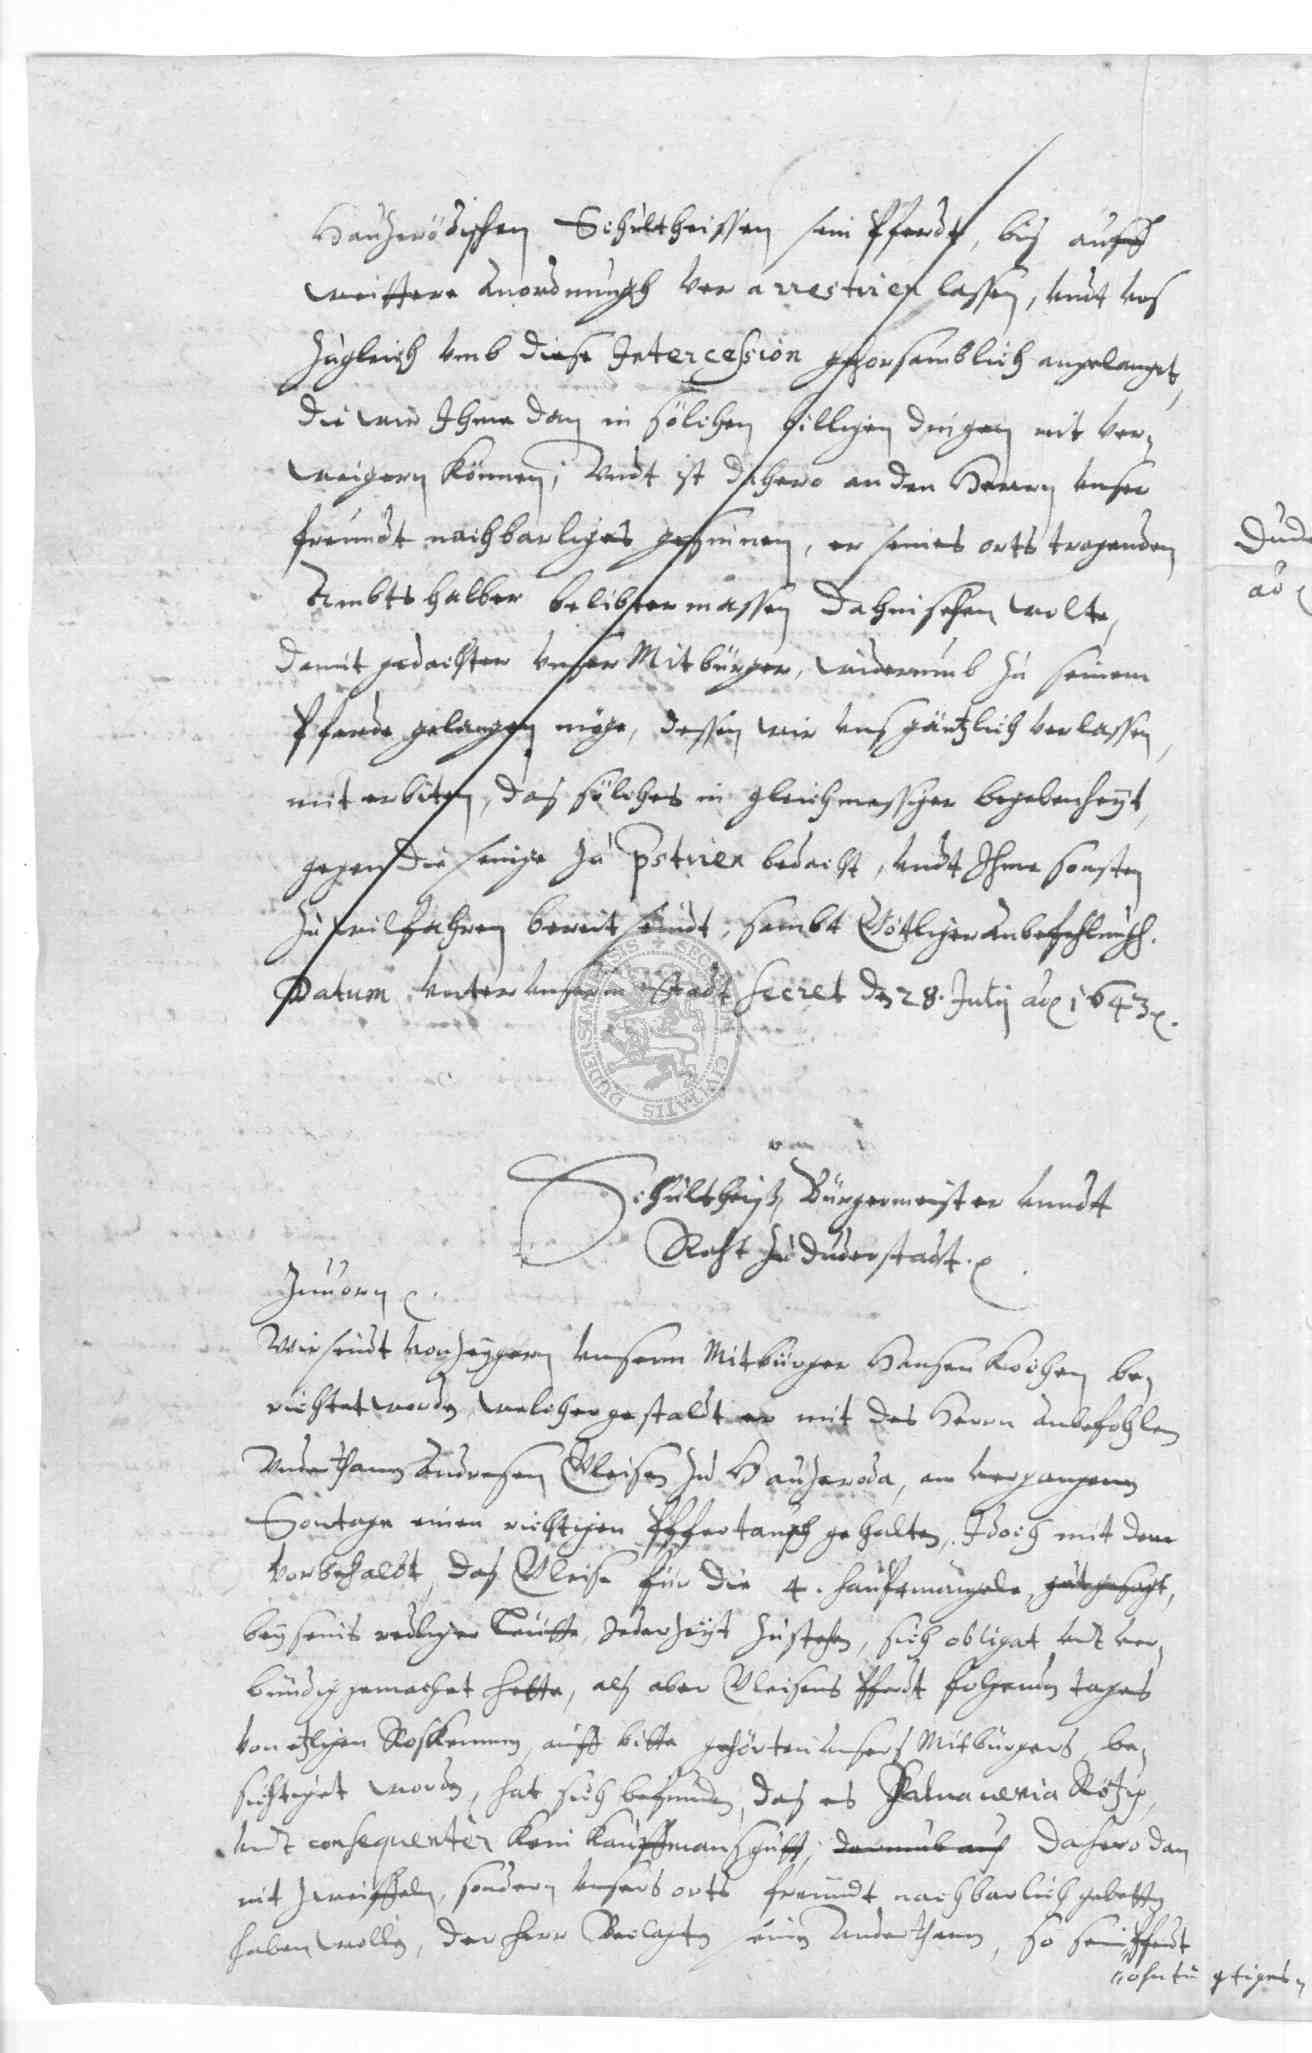 Hautzerödischen Schultheissen sein Pferdt, biß auf
weittere Anordnungh ver arrestiren lassen, undt uns
zugleich umb diese Intercession gehorsamblich angelanget,
die wir Ihme dan in sölchen billigen dingen nit ver-
weigern können, Undt ist dahero an den Herrn unser
freundt nachbarliges gesinnen, er seines orts tragenden
Ambts halber belibter massen dahin sehen wolte,
damit gedachter unser Mitbürger, widerumb zu seinem
Pferde gelangen möge, dessen wir uns gäntzlich verlassen,
mit erbiten, daß sölches in gleichmessiger begebenheyt,
gegen die seinige zu pstiren bedacht, undt Ihme sonsten
zu wilfahren bereit seindt, sambt Götliger Anbefehlungh.
Datum unter unserm Stadt Secret den 28. July ao 1643
SECRETUM CIVITATIS DUDERSTADENSIS
Schultheiß, Bürgermeister unndt
Raht zu Duderstadt.
Zuuorn
Wir seindt von zeygern unserm Mitbürger Hansen Kochen be-
richtet worden, welcher gestaldt er mit des Herrn anbefohlen
Underthanen Andresen Gleisen zu Hautzeroda, am vergangenen
Sontage einen richtigen Pffertausch gehalten, Idoch mit dem
Vorbehaldt, daß Gleise für die 4. hauptmangele, gutgesagt,
bey seins redliger Leuthe, Jederzeyt zustehen, sich obligat undt ver-
bündig gemachet hette, alß aber Gleisens Pferdt folgenden tages
von etzligen Roßkemmen, auff bitte gehörten unsers Mitbürgers, be-
sichtiget worden, hat sich befunden, daß es Rotzig,
undt consequenter kein Kauffmansgutt, darumb auch dahero dan
nit zweiffeln, sondern unsers orts freundt nachbarlich gebetten
haben wollen, der herr Beclagten seinen Underthanen, so sein Pferdt
Dude
ao